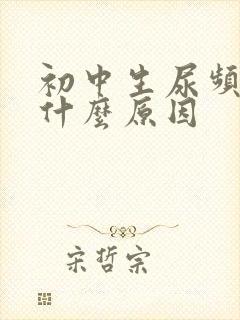 初中生尿頻
什麼原因
宋哲宗